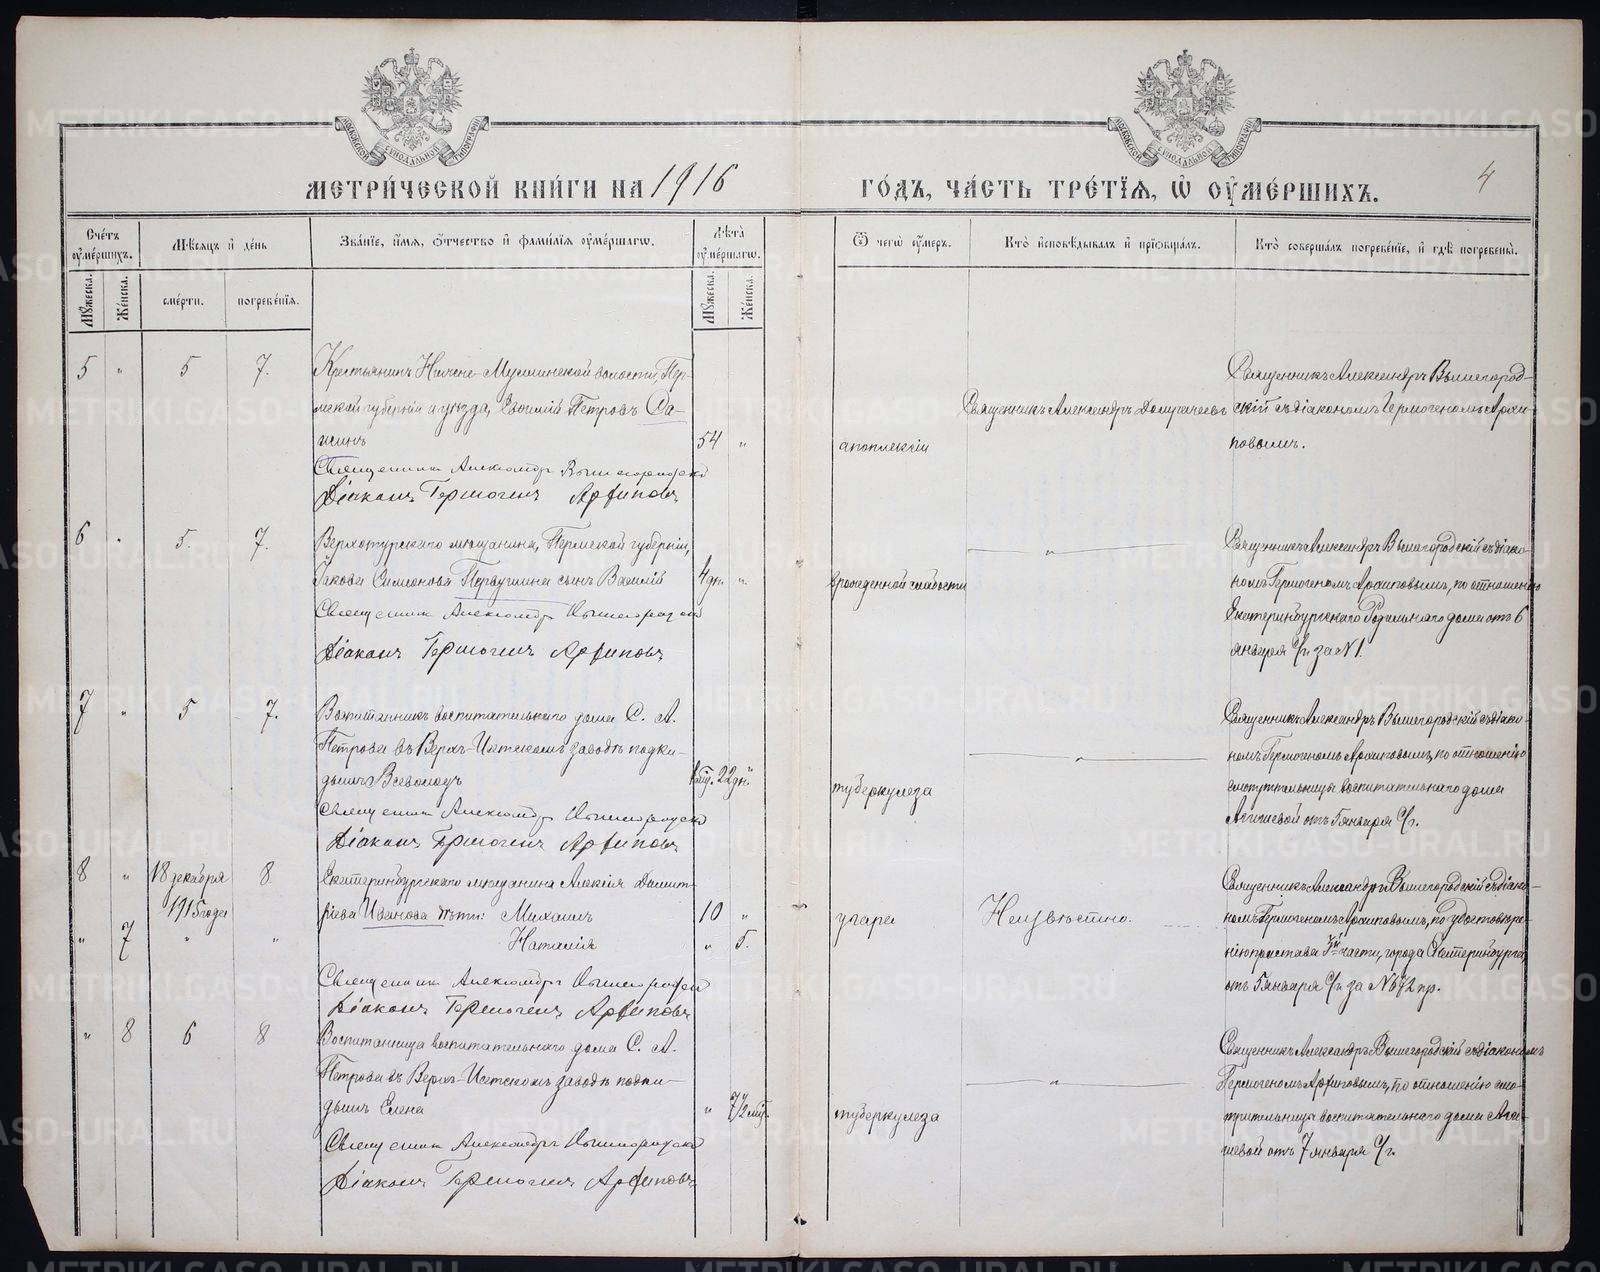 МЕТРИЧЕСКОЙ КНИГИ НА 1916
ГОДЪ, ЧАСТЬ ТРЕТІЯ, Ѡ ОУМЕРШИХЪ.
4
МОСКОВСКОЙ СУНОДАЛЬНОЙ ТИПОГРАФІИ
МОСКОВСКОЙ СУНОДАЛЬНОЙ ТИПОГРАФІИ
Счетъ оумершихъ.
Мѣсяцъ и день
Званіе, имя, отчество и фамилія оумершагѡ.
Лѣта оумершагѡ.
Ѿ чегѡ оумеръ.
Кто исповѣдывалъ и пріобщалъ.
Кто совершалъ погребеніе, и гдѣ погребены.
Мужеска. Женска. смерти. погребенія. Мужеска. Женска.
5 " 5 7.
Крестьянинъ Нижне-Муллинской волости, Пер-
мской губерніи и уѣзда, Евгеній Петровъ
54 "
Священникъ Александръ Вышегородскій
Діаконъ Гермогенъ Архиповъ
апоплексіи
Священникъ Александръ
Священникъ Александръ Вышегород-
скій съ діакономъ Гермогеномъ Архи-
повымъ.
6 " 5. 7.
Верхотурскаго мѣщанина, Пермской губерніи,
Іакова Симонова Первушина сынъ Василій
4 дн. "
Священникъ Александръ Вышегородскій
Діаконъ Гермогенъ Архиповъ
врожденной слабости
"
Священникъ Александръ Вышегородскій съ діако-
номъ Гермогеномъ Архиповымъ, по отношенію
Екатеринбургскаго Родильнаго дома отъ 6
января с/г. за № 1.
7 " 5 7.
Воспитанникъ воспитательнаго дома С. А.
Петрова въ Верхъ-Исетскомъ заводѣ подки-
дышъ Всеволодъ
22 дн. "
Священникъ Александръ Вышегородскій
Діаконъ Гермогенъ Архиповъ
туберкулеза
"
Священникъ Александръ Вышегородскій съ діако-
номъ Гермогеномъ Архиповымъ, по отношенію
смотрительницы воспитательнаго дома
Агишевой отъ января с/г.
8 " 18 декабря 8
1915 года
Екатеринбургскаго мѣщанина Алексія Димит-
ріева Иванова дѣти: Михаилъ
10 "
" 7 " "
Наталія
" 5.
Священникъ Александръ Вышегородскій
Діаконъ Гермогенъ Архиповъ
угара
Неизвѣстно.
Священникъ Александръ Вышегородскій съ діако-
номъ Гермогеномъ Архиповымъ, по удостовѣре-
нію пристава 3й части, города Екатеринбурга,
отъ 5 января с/г. за № 672 пр.
" 8 6 8
Воспитанница воспитательнаго дома С. А.
Петрова въ Верхъ-Исетскомъ заводѣ подки-
дышъ Елена
" 7½ мѣс.
Священникъ Александръ Вышегородскій
Діаконъ Гермогенъ Архиповъ
туберкулеза
"
Священникъ Александръ Вышегородскій съ діакономъ
Гермогеномъ Архиповымъ, по отношенію смо-
трительницы воспитательнаго дома Аги-
шевой отъ 7 января с/г.
METRIKI.GASO-URAL.RU